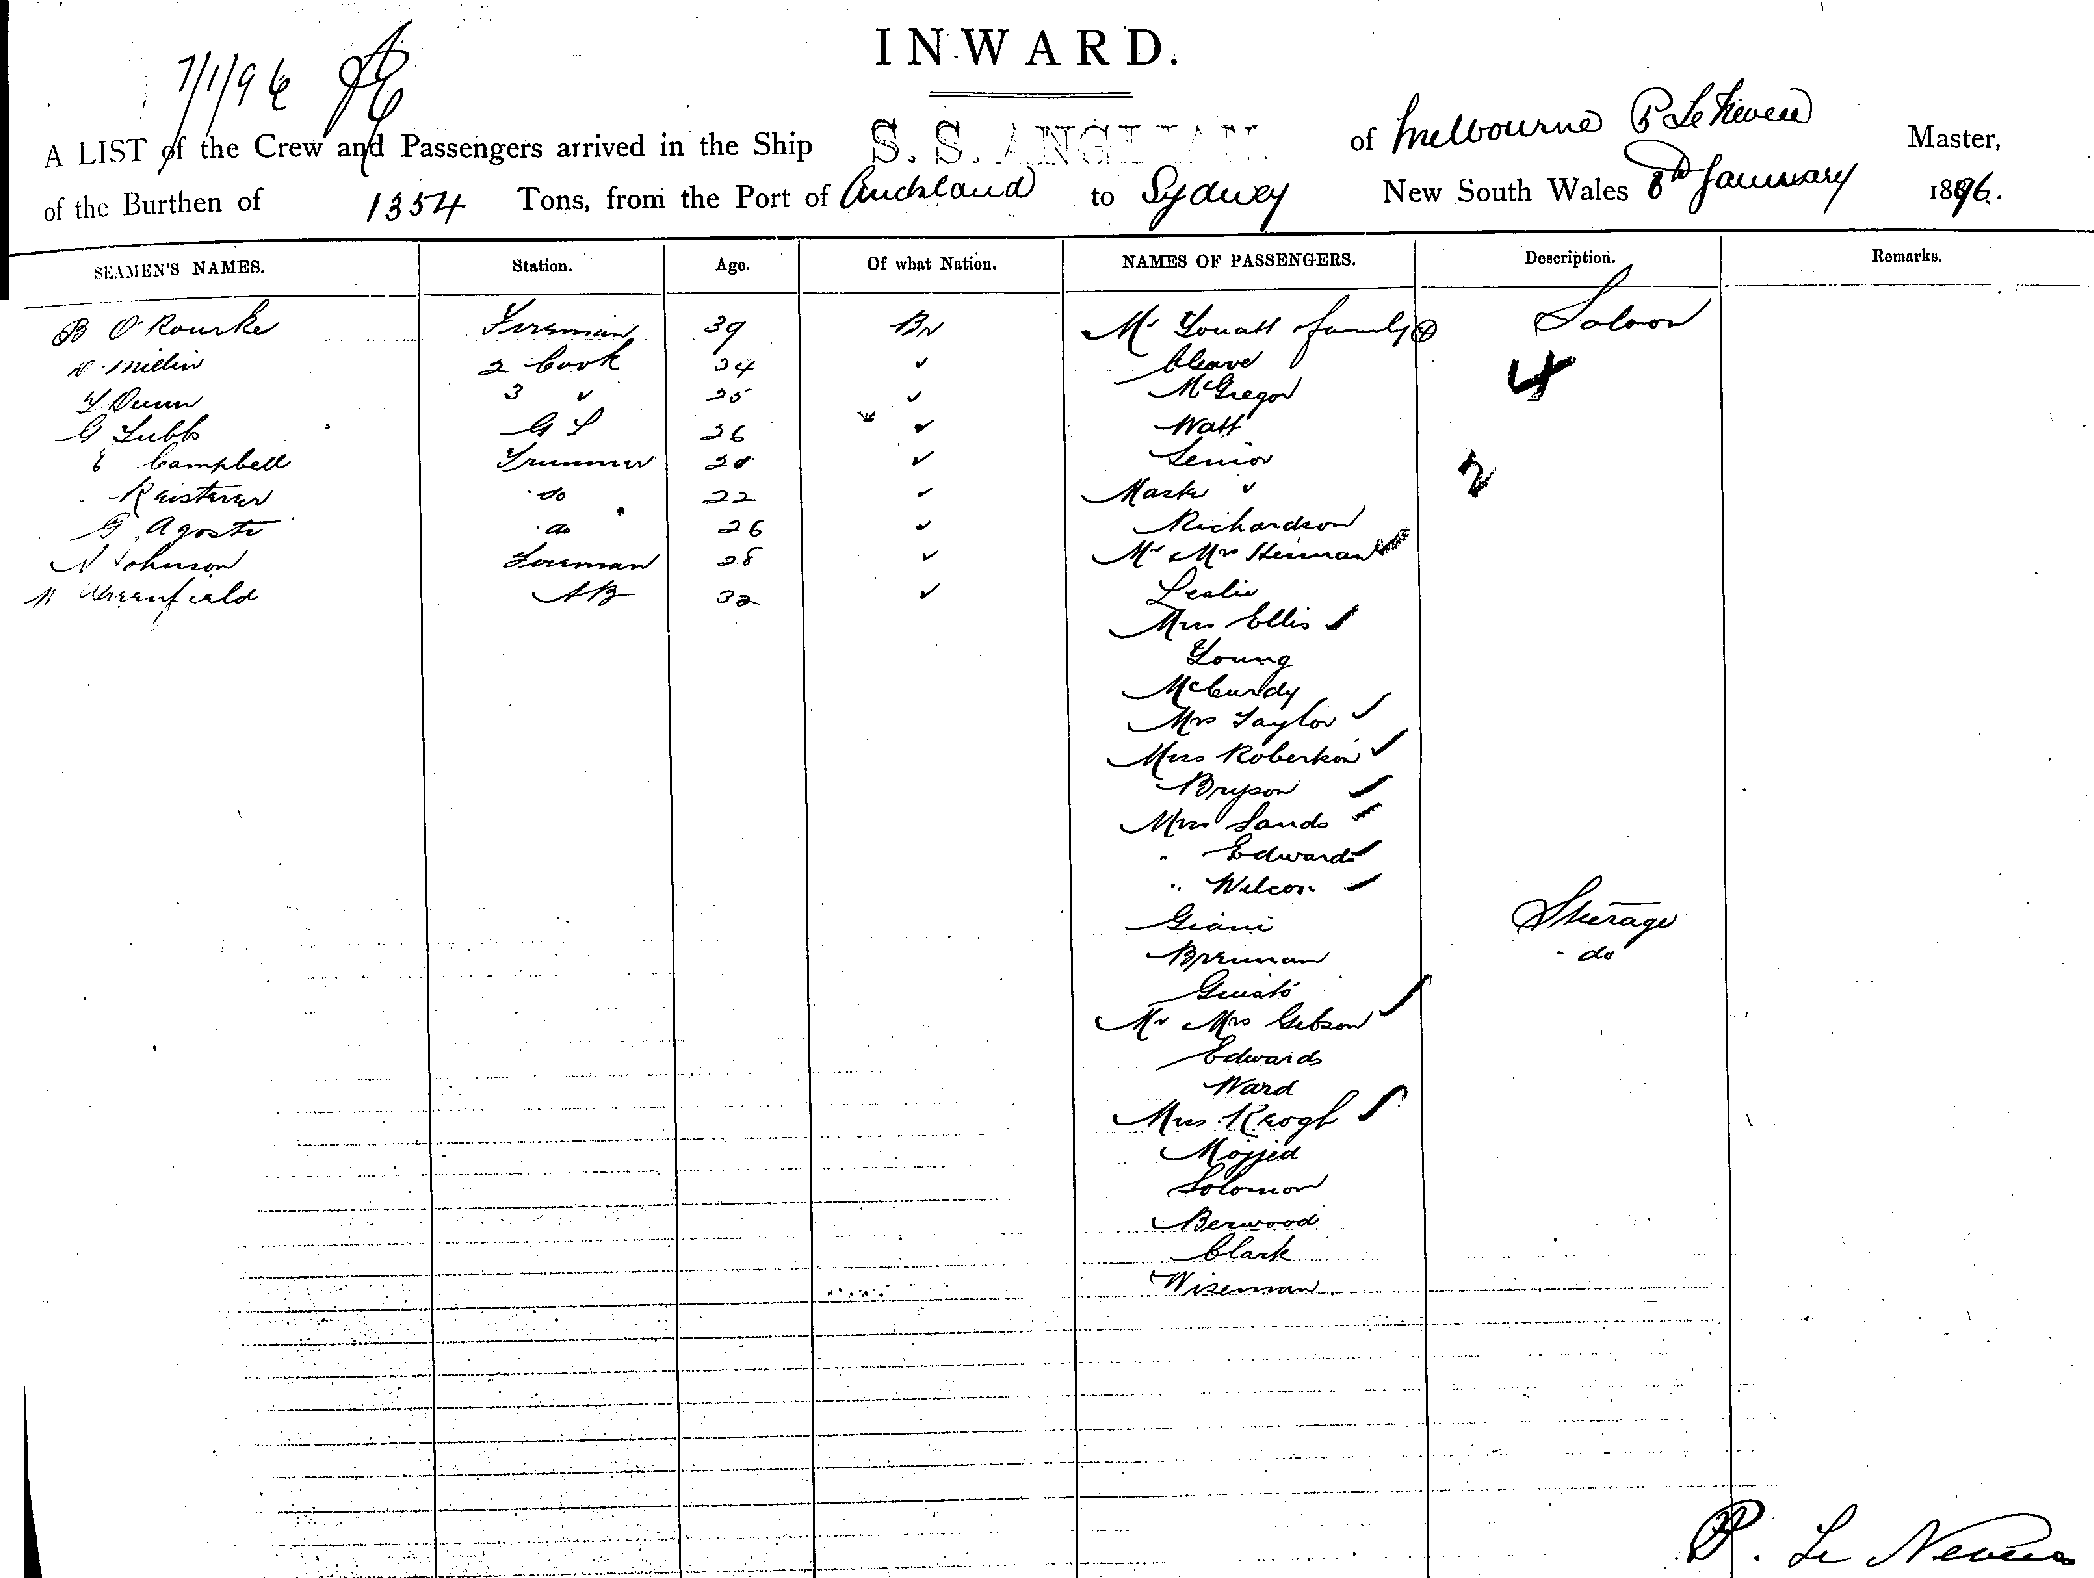 INWARD.
7/1/96
A LIST of the Crew and Passengers arrived in the Ship S. S. ANGLIAN of Melbourne P Le Neveu Master,
of the Burthen of 1354 Tons, from the Port of Auckland to Sydney New South Wales 8th January 1896.
SEAMEN'S NAMES. Station. Age. Of what Nation. NAMES OF PASSENGERS. Description. Remarks.
B O'Rourke Fireman 39 Br Mr family Saloon
2 Cook 34 ✓ Cleave 4
Y Dunn 3 ✓ 25 ✓ McGregor
G Tubb G S 26 ✓ Watt
E Campbell Trimmer ✓ Senior 2
do 22 ✓ Mark ✓
G Agosti do 26 ✓ Richardson
N Johnson 28 ✓ Mr Mrs
M Greenfield AB 32 ✓ Leslie
Miss Ellis ✓
Young
McCurdy
Mrs Taylor ✓
Miss Robertson ✓
Bryson ✓
Miss Sands ✓
" Edwards ✓
" Wilcox ✓
Giani Steerage
Brennan do
Mr Mrs Gibson ✓
Edwards
Ward
Miss Krogh ✓
Mojjed
Solomon
Berwood
Clark
Wiseman
P. Le Neveu